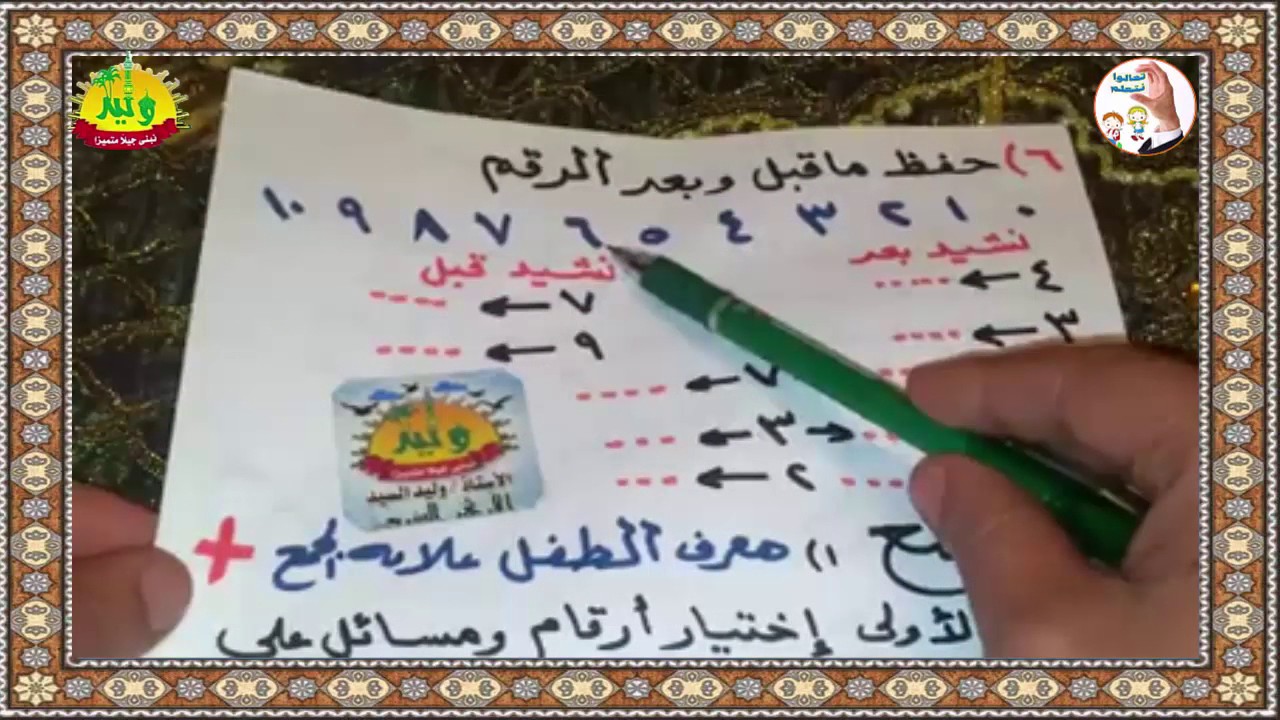 وليد
نبني جيلا متميزا
تعالوا
نتعلم
٦) حفظ ماقبل وبعد الرقم
٠ ١ ٢ ٣ ٤ ٥ ٦ ٧ ٨ ٩ ١٠
نشيد بعد
نشيد قبل
٤ ← .....
٧ ← ....
٣ ← ....
٩ ← ....
٧ ← ....
... ← ٣ → ...
.... ٢ ← ...
وليد
نبني جيلا متميزا
الأستاذ / وليد السيد
١) معرف الطفل علامة الجمع +
لأولى إختيار أرقام ومسائل على